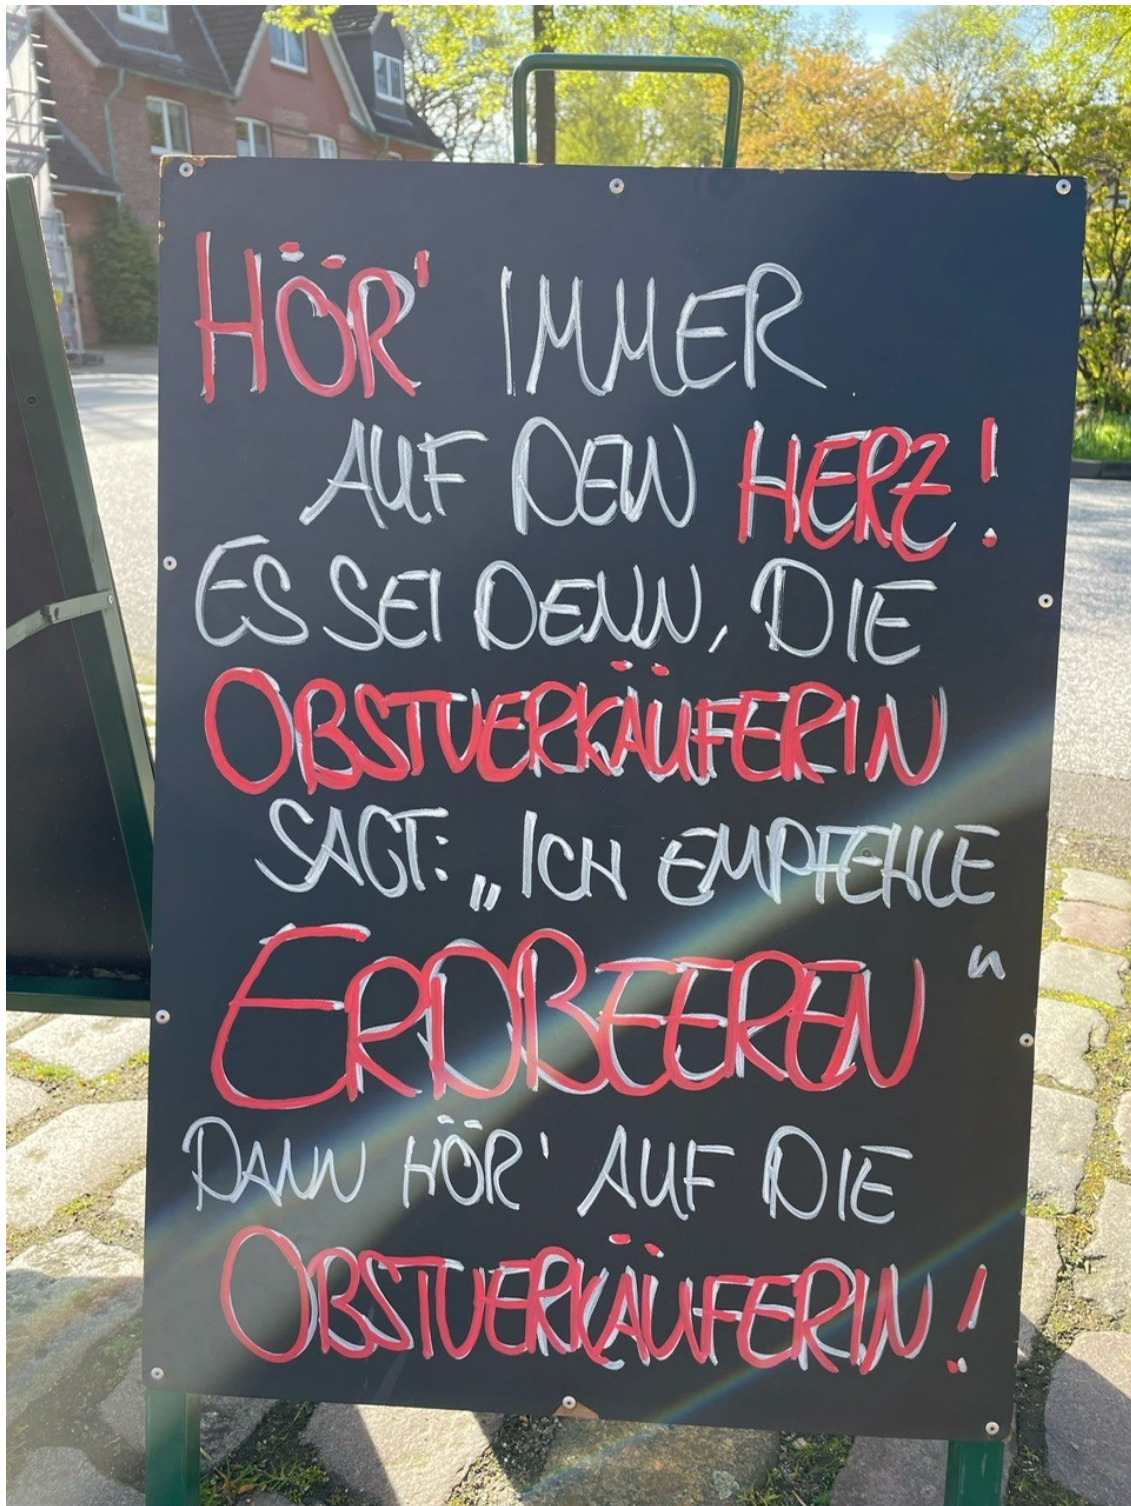 HÖR' IMMER
AUF DEIN HERZ!
ES SEI DENN, DIE
OBSTVERKÄUFERIN
SAGT: „ICH EMPFEHLE
ERDBEEREN“
DANN HÖR' AUF DIE
OBSTVERKÄUFERIN!